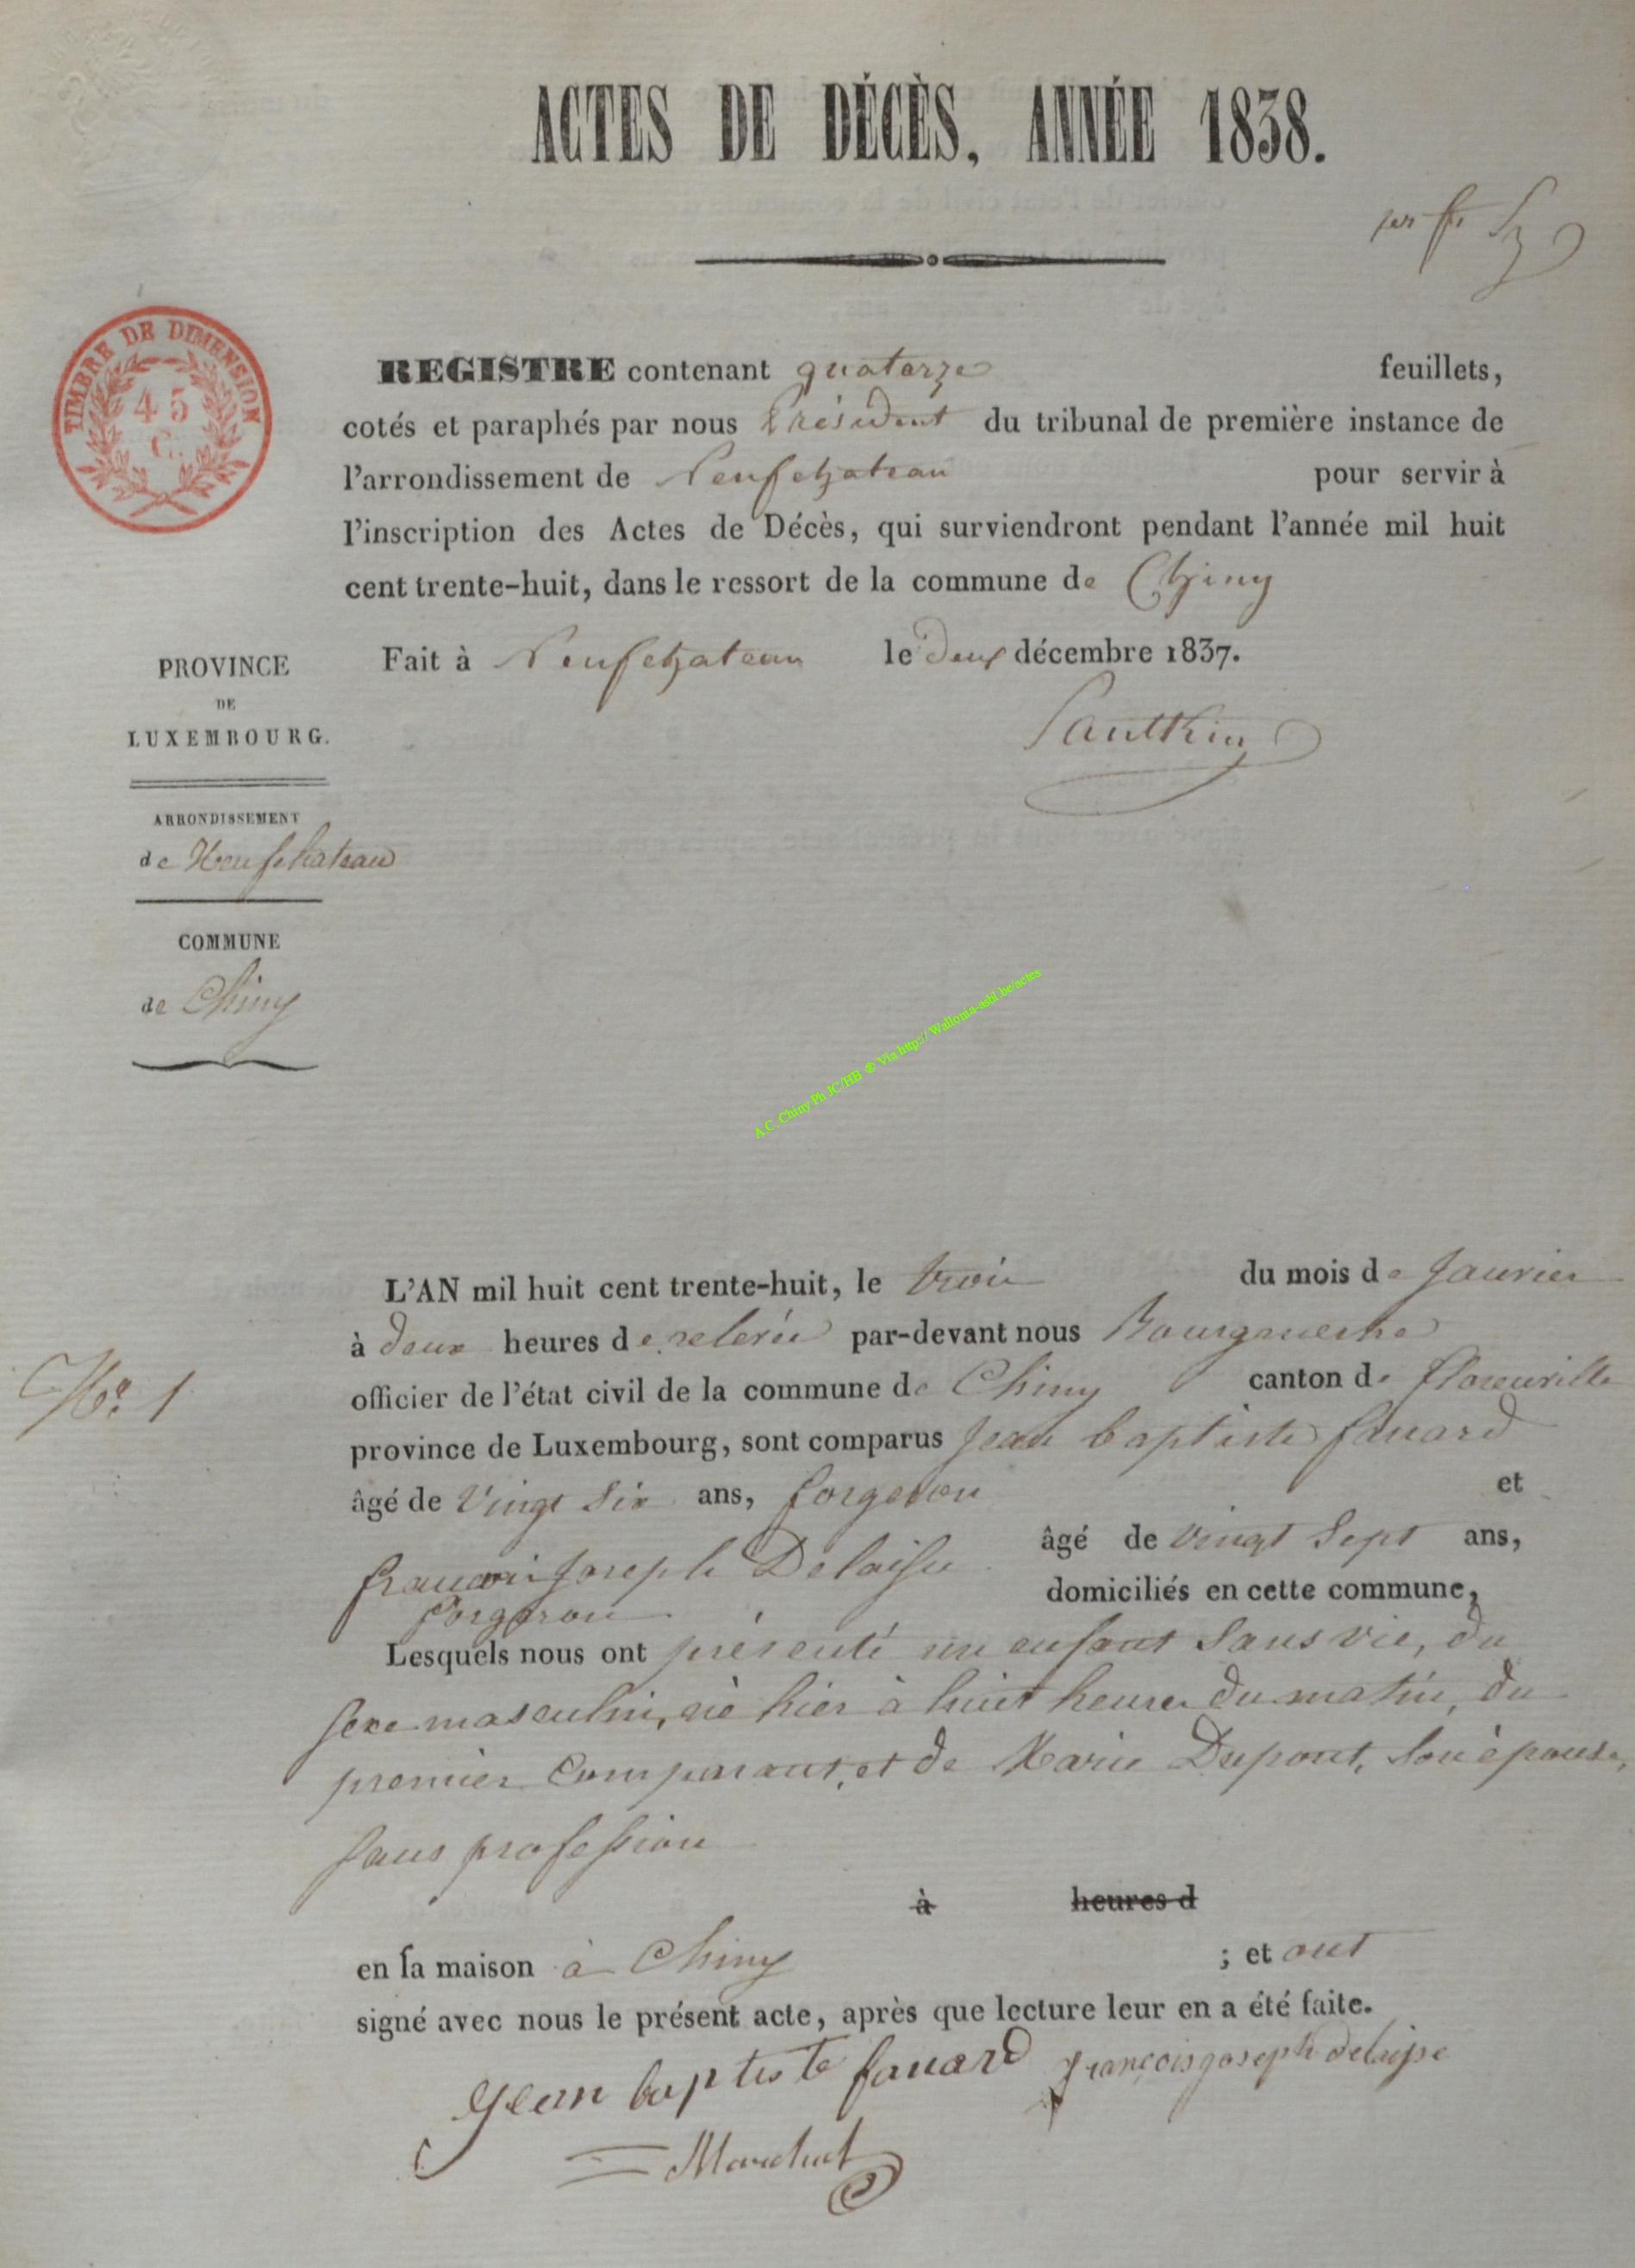 ACTES DE DÉCÈS, ANNÉE 1838.
TIMBRE DE DIMENSION
45
C.
REGISTRE contenant quatorze feuillets,
cotés et paraphés par nous Président du tribunal de première instance de
l'arrondissement de Neufchateau pour servir à
l'inscription des Actes de Décès, qui surviendront pendant l'année mil huit
cent trente-huit, dans le ressort de la commune de Chiny
Fait à Neufchateau le deux décembre 1837.
PROVINCE
DE
LUXEMBOURG.
ARRONDISSEMENT
de Neufchateau
COMMUNE
de Chiny
A.C. Chiny Ph JC/HB © Via http:// Wallonia-asbl.be/actes
L'AN mil huit cent trente-huit, le trois du mois de Janvier
à deux heures de relevée par-devant nous Bourgmestre
N° 1
officier de l'état civil de la commune de Chiny canton de florenville
province de Luxembourg, sont comparus Jean baptiste fanard
âgé de vingt six ans, forgeron et
françois Joseph Delaisse âgé de vingt sept ans,
forgeron domiciliés en cette commune,
Lesquels nous ont présenté un enfant sans vie, du
sexe masculin, né hier à huit heures du matin, du
premier comparant, et de Marie Dupont, son épouse,
sans profession
à heures d
en sa maison à Chiny ; et ont
signé avec nous le présent acte, après que lecture leur en a été faite.
Jean baptiste fanard françois joseph delaisse